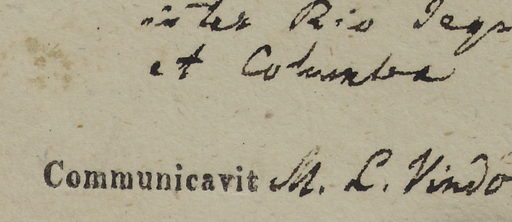 inter Rio Jequ
et Columbea
Communicavit M. L. Vindo